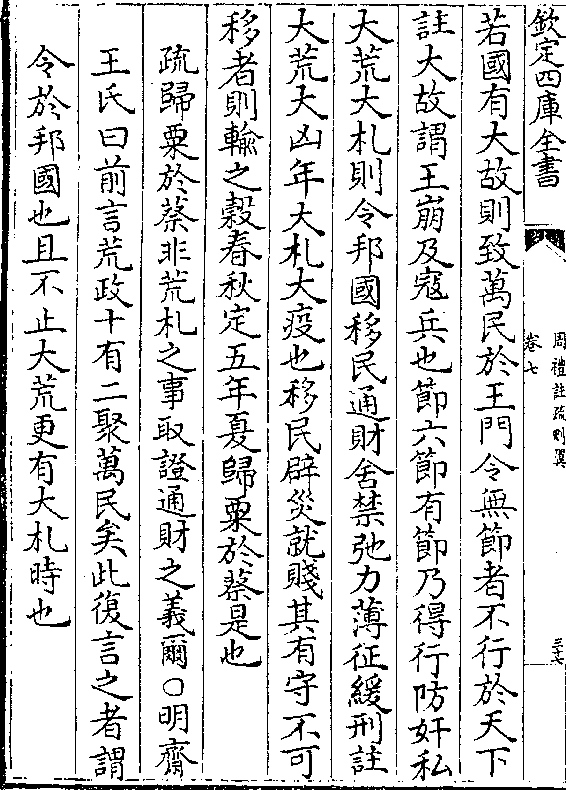 欽定四庫全書
周禮註疏刪翼
卷七
三十七
若國有大故則致萬民於王門令無節者不行於天下
註大故謂王崩及寇兵也節六節有節乃得行防奸私
大荒大札則令邦國移民通財舍禁弛力薄征緩刑註
大荒大凶年大札大疫也移民辟災就賤其有守不可
移者則輸之穀春秋定五年夏歸粟於蔡是也
疏歸粟於蔡非荒札之事取證通財之義爾○明齋
王氏曰前言荒政十有二聚萬民矣此復言之者謂
令於邦國也且不止大荒更有大札時也